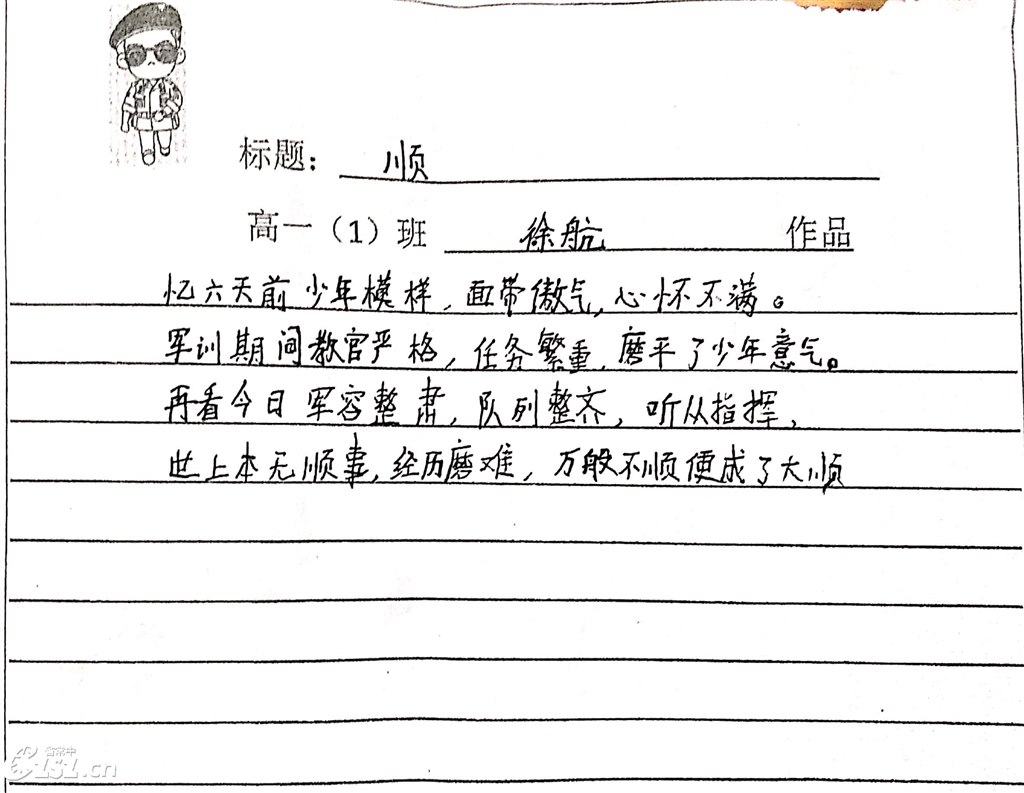 标题：顺
高一（1）班 徐航 作品
忆六天前少年模样，面带傲气，心怀不满。
军训期间教官严格，任务繁重，磨平了少年意气。
再看今日军容整肃，队列整齐，听从指挥，
世上本无顺事，经历磨难，万般不顺便成了大顺
省常中
1s1.cn